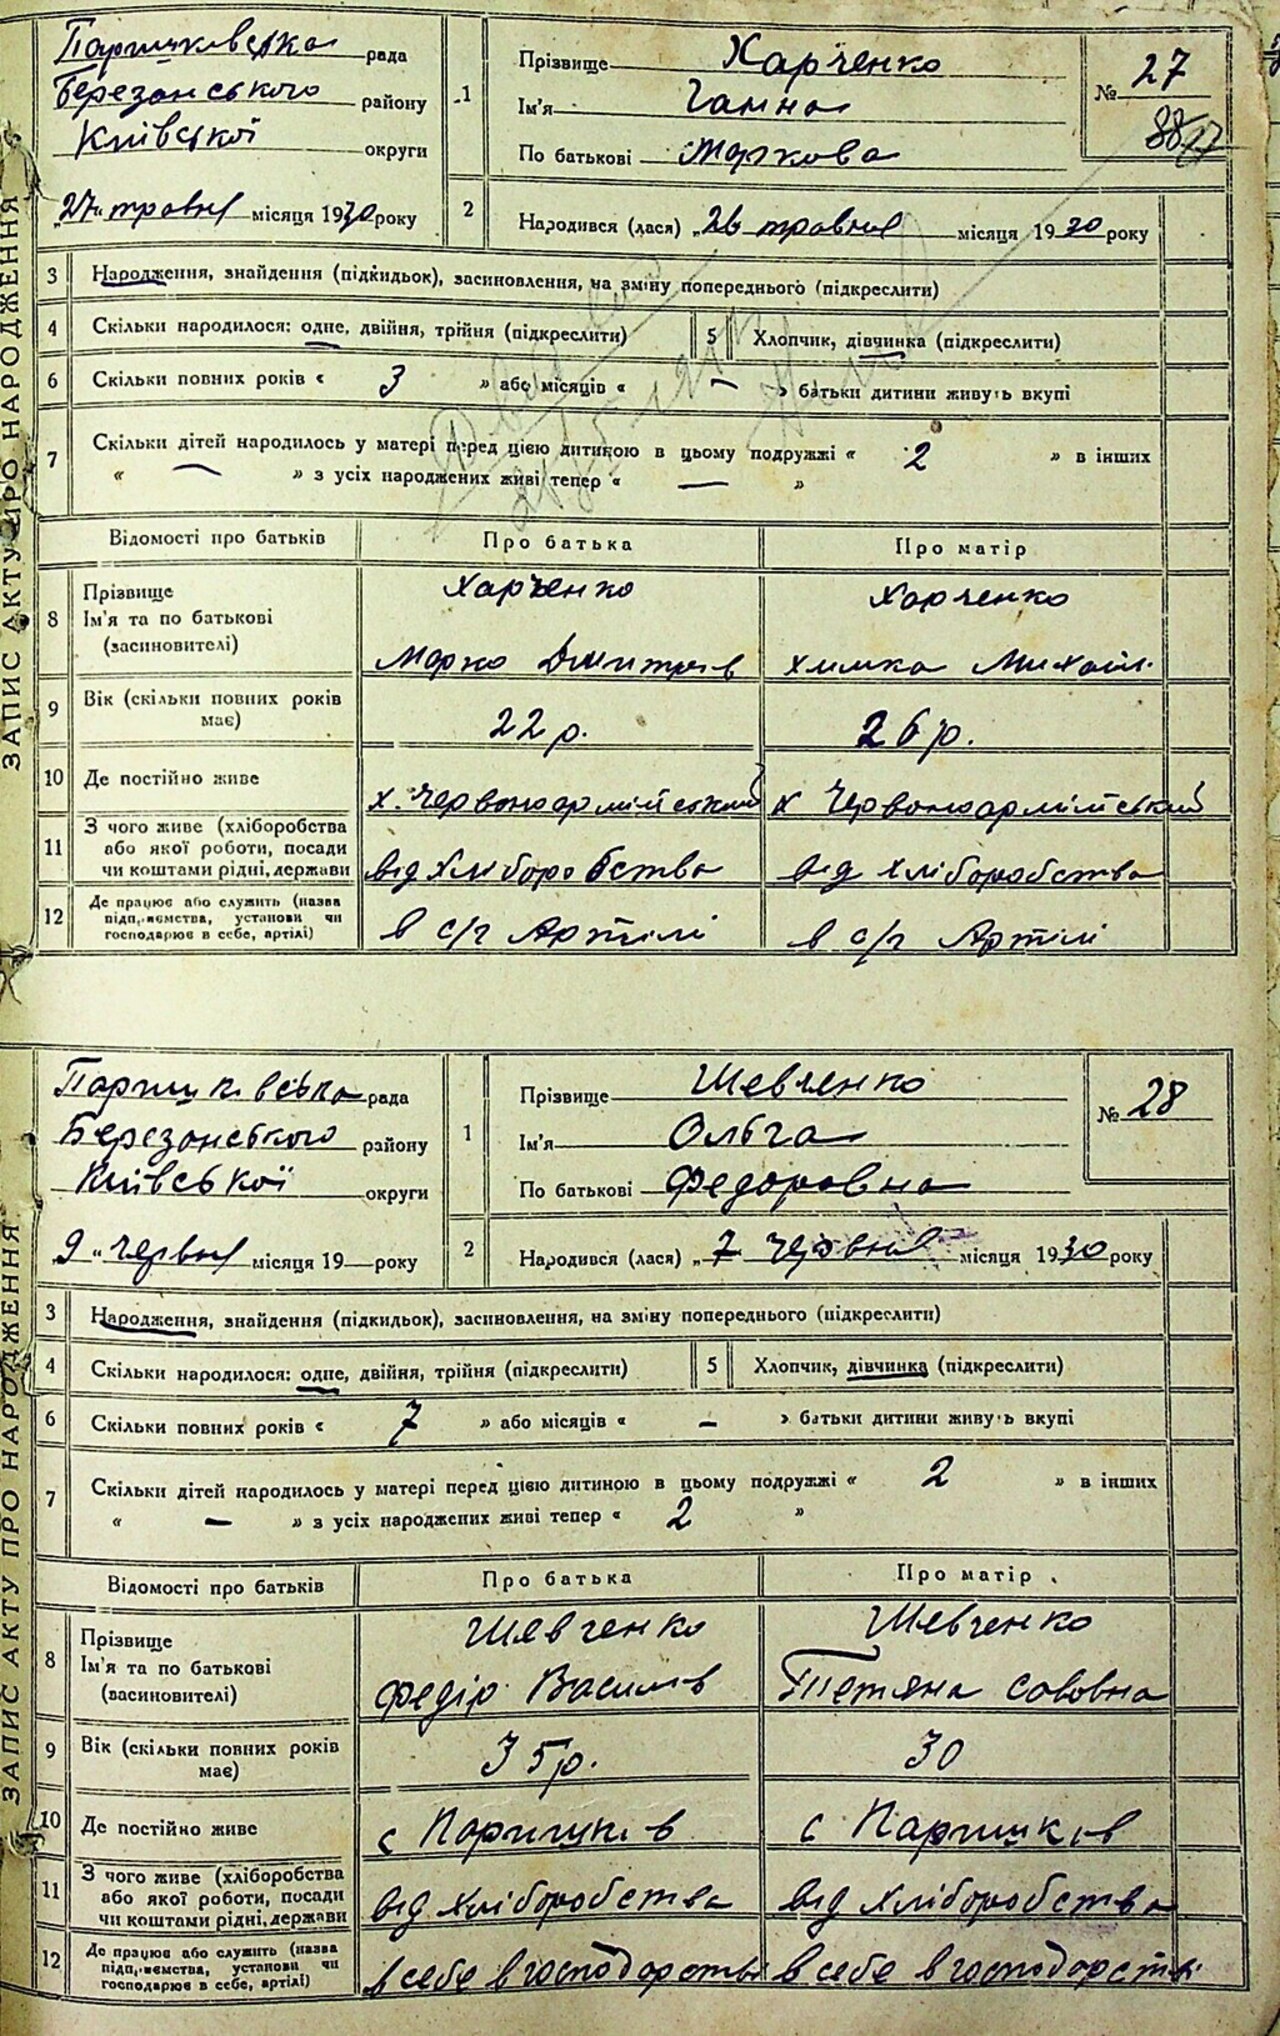 ЗАПИС АКТУ ПРО НАРОДЖЕННЯ
Паришківська рада
Березанського району
Київської округи
„27" травня місяця 1930 року
1
Прізвище Харченко
Ім'я Ганна
По батькові Маркова
№ 27
88
2
Народився (лася) „26 травня місяця 1930 року
3 Народження, знайдення (підкидьок), засиновлення, на зміну попереднього (підкреслити)
4 Скільки народилося: одне, двійня, трійня (підкреслити) 5 Хлопчик, дівчинка (підкреслити)
6 Скільки повних років « 3 » або місяців « — » батьки дитини живуть вкупі
7 Скільки дітей народилось у матері перед цією дитиною в цьому подружжі « 2 » в інших
« — » з усіх народжених живі тепер « — »
Відомості про батьків Про батька Про матір
8 Прізвище Харченко Харченко
Ім'я та по батькові
(засиновителі) Марко Дмитрів Химка Михайл.
9 Вік (скільки повних років має) 22 р. 26 р.
10 Де постійно живе х. Червоноармійський х Червоноармійський
11 З чого живе (хліборобства
або якої роботи, посади
чи коштами рідні, держави від хліборобства від хліборобства
12 Де працює або служить (назва
підприємства, установи чи
господарює в себе, артілі) в с/г Артілі в с/г Артілі
ЗАПИС АКТУ ПРО НАРОДЖЕННЯ
Паришківська рада
Березанського району
Київської округи
„9" червня місяця 19 року
1
Прізвище Шевченко
Ім'я Ольга
По батькові Федоровна
№ 28
2
Народився (лася) „7 червня місяця 1930 року
3 Народження, знайдення (підкидьок), засиновлення, на зміну попереднього (підкреслити)
4 Скільки народилося: одне, двійня, трійня (підкреслити) 5 Хлопчик, дівчинка (підкреслити)
6 Скільки повних років « 7 » або місяців « — » батьки дитини живуть вкупі
7 Скільки дітей народилось у матері перед цією дитиною в цьому подружжі « 2 » в інших
« — » з усіх народжених живі тепер « 2 »
Відомості про батьків Про батька Про матір
8 Прізвище Шевченко Шевченко
Ім'я та по батькові
(засиновителі) Федір Васильів Тетяна Савовна
9 Вік (скільки повних років має) 35 р. 30
10 Де постійно живе с Паришків с Паришків
11 З чого живе (хліборобства
або якої роботи, посади
чи коштами рідні, держави від хліборобства від хліборобства
12 Де працює або служить (назва
підприємства, установи чи
господарює в себе, артілі) в себе в господарстві в себе в господарстві